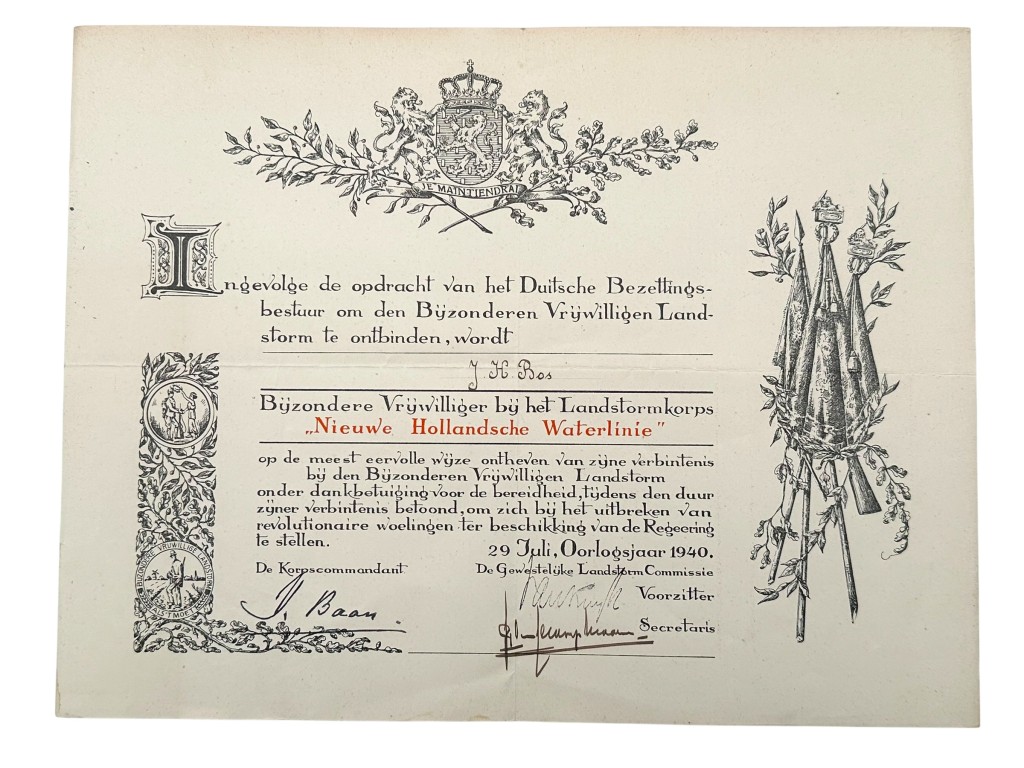 JE MAINTIENDRAI
Ingevolge de opdracht van het Duitsche Bezettings-
bestuur om den Bijzonderen Vrijwilligen Land-
storm te ontbinden, wordt
J. H. Bos
Bijzondere Vrijwilliger bij het Landstormkorps
„Nieuwe Hollandsche Waterlinie"
op de meest eervolle wijze ontheven van zijne verbintenis
bij den Bijzonderen Vrijwilligen Landstorm
onder dankbetuiging voor de bereidheid, tijdens den duur
zijner verbintenis betoond, om zich bij het uitbreken van
revolutionaire woelingen ter beschikking van de Regeering
te stellen.
29 Juli, Oorlogsjaar 1940.
De Korpscommandant
De Gewestelijke Landstorm Commissie
Voorzitter
Baan.
Secretaris
BIJZONDERE VRIJWILLIGE LANDSTORM